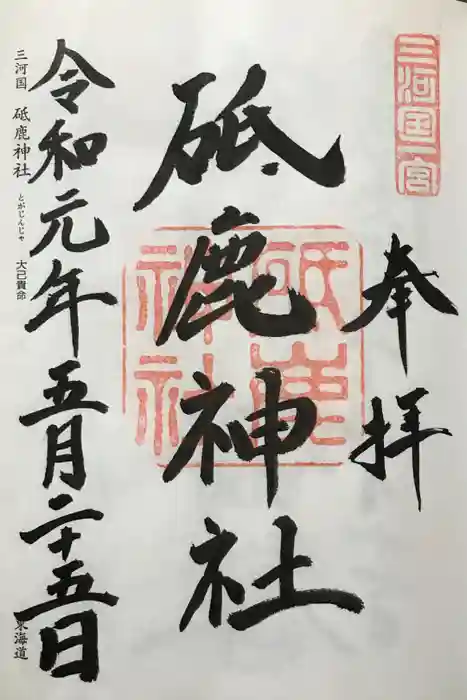 三河国一宮
奉拝
砥鹿神社
砥鹿神社
令和元年五月二十五日
三河国 砥鹿神社 とがじんじゃ 大己貴命
東海道